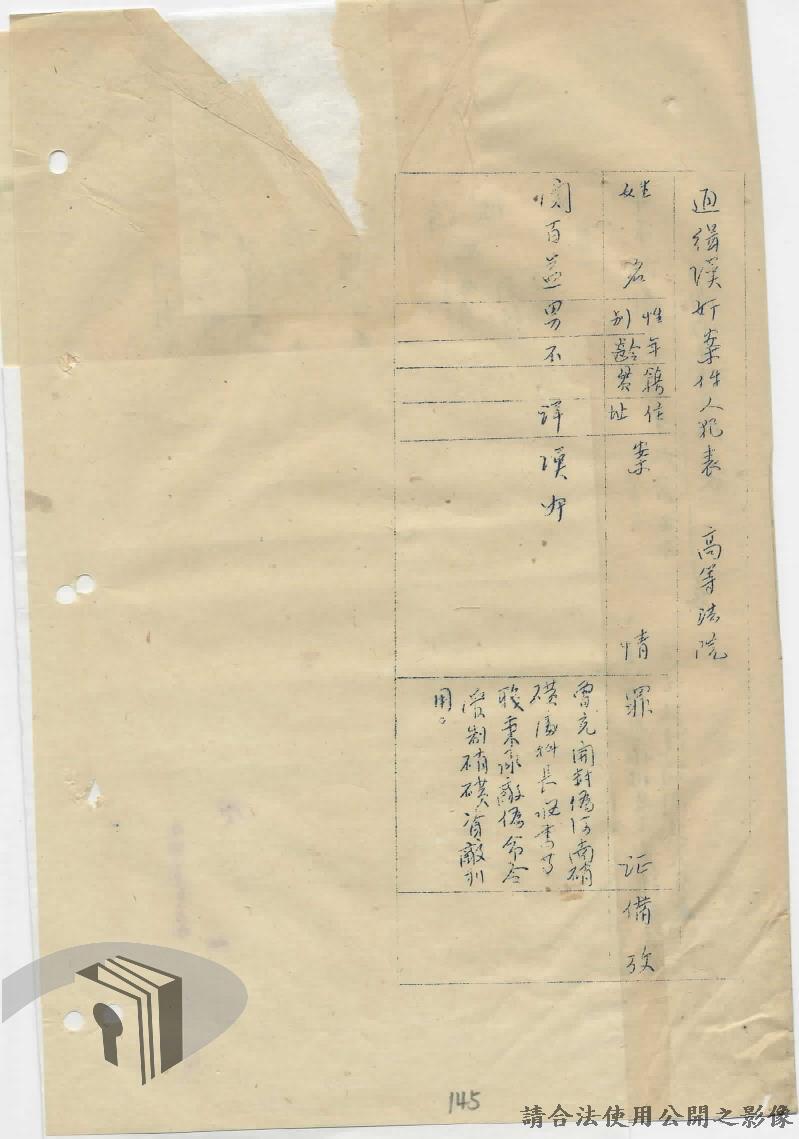 通緝漢奸案件人犯表 高等法院
姓名
性別
年齡
籍貫
住址
案情
罪証
備攷
百益
男
不詳
漢奸
曾充開封偽河南硝
磺處科長秘書等
職秉承敵偽命令
收制硝磺資敵利
用。
145
請合法使用公開之影像